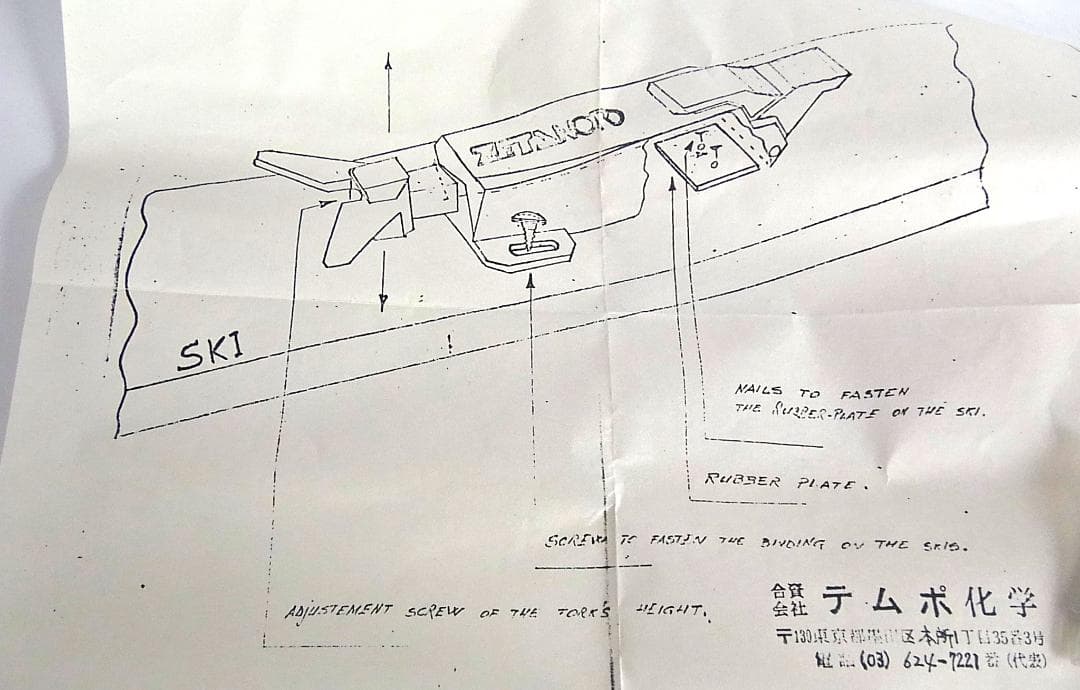 ZETANOTO
SKI
NAILS TO FASTEN
THE RUBBER-PLATE ON THE SKI.
RUBBER PLATE.
SCREW TO FASTEN THE BINDING ON THE SKIS.
ADJUSTEMENT SCREW OF THE TORK'S HEIGHT.
合資会社 テムポ化学
〒130東京都墨田区本所1丁目35番3号
電話(03) 624-7221番(代表)